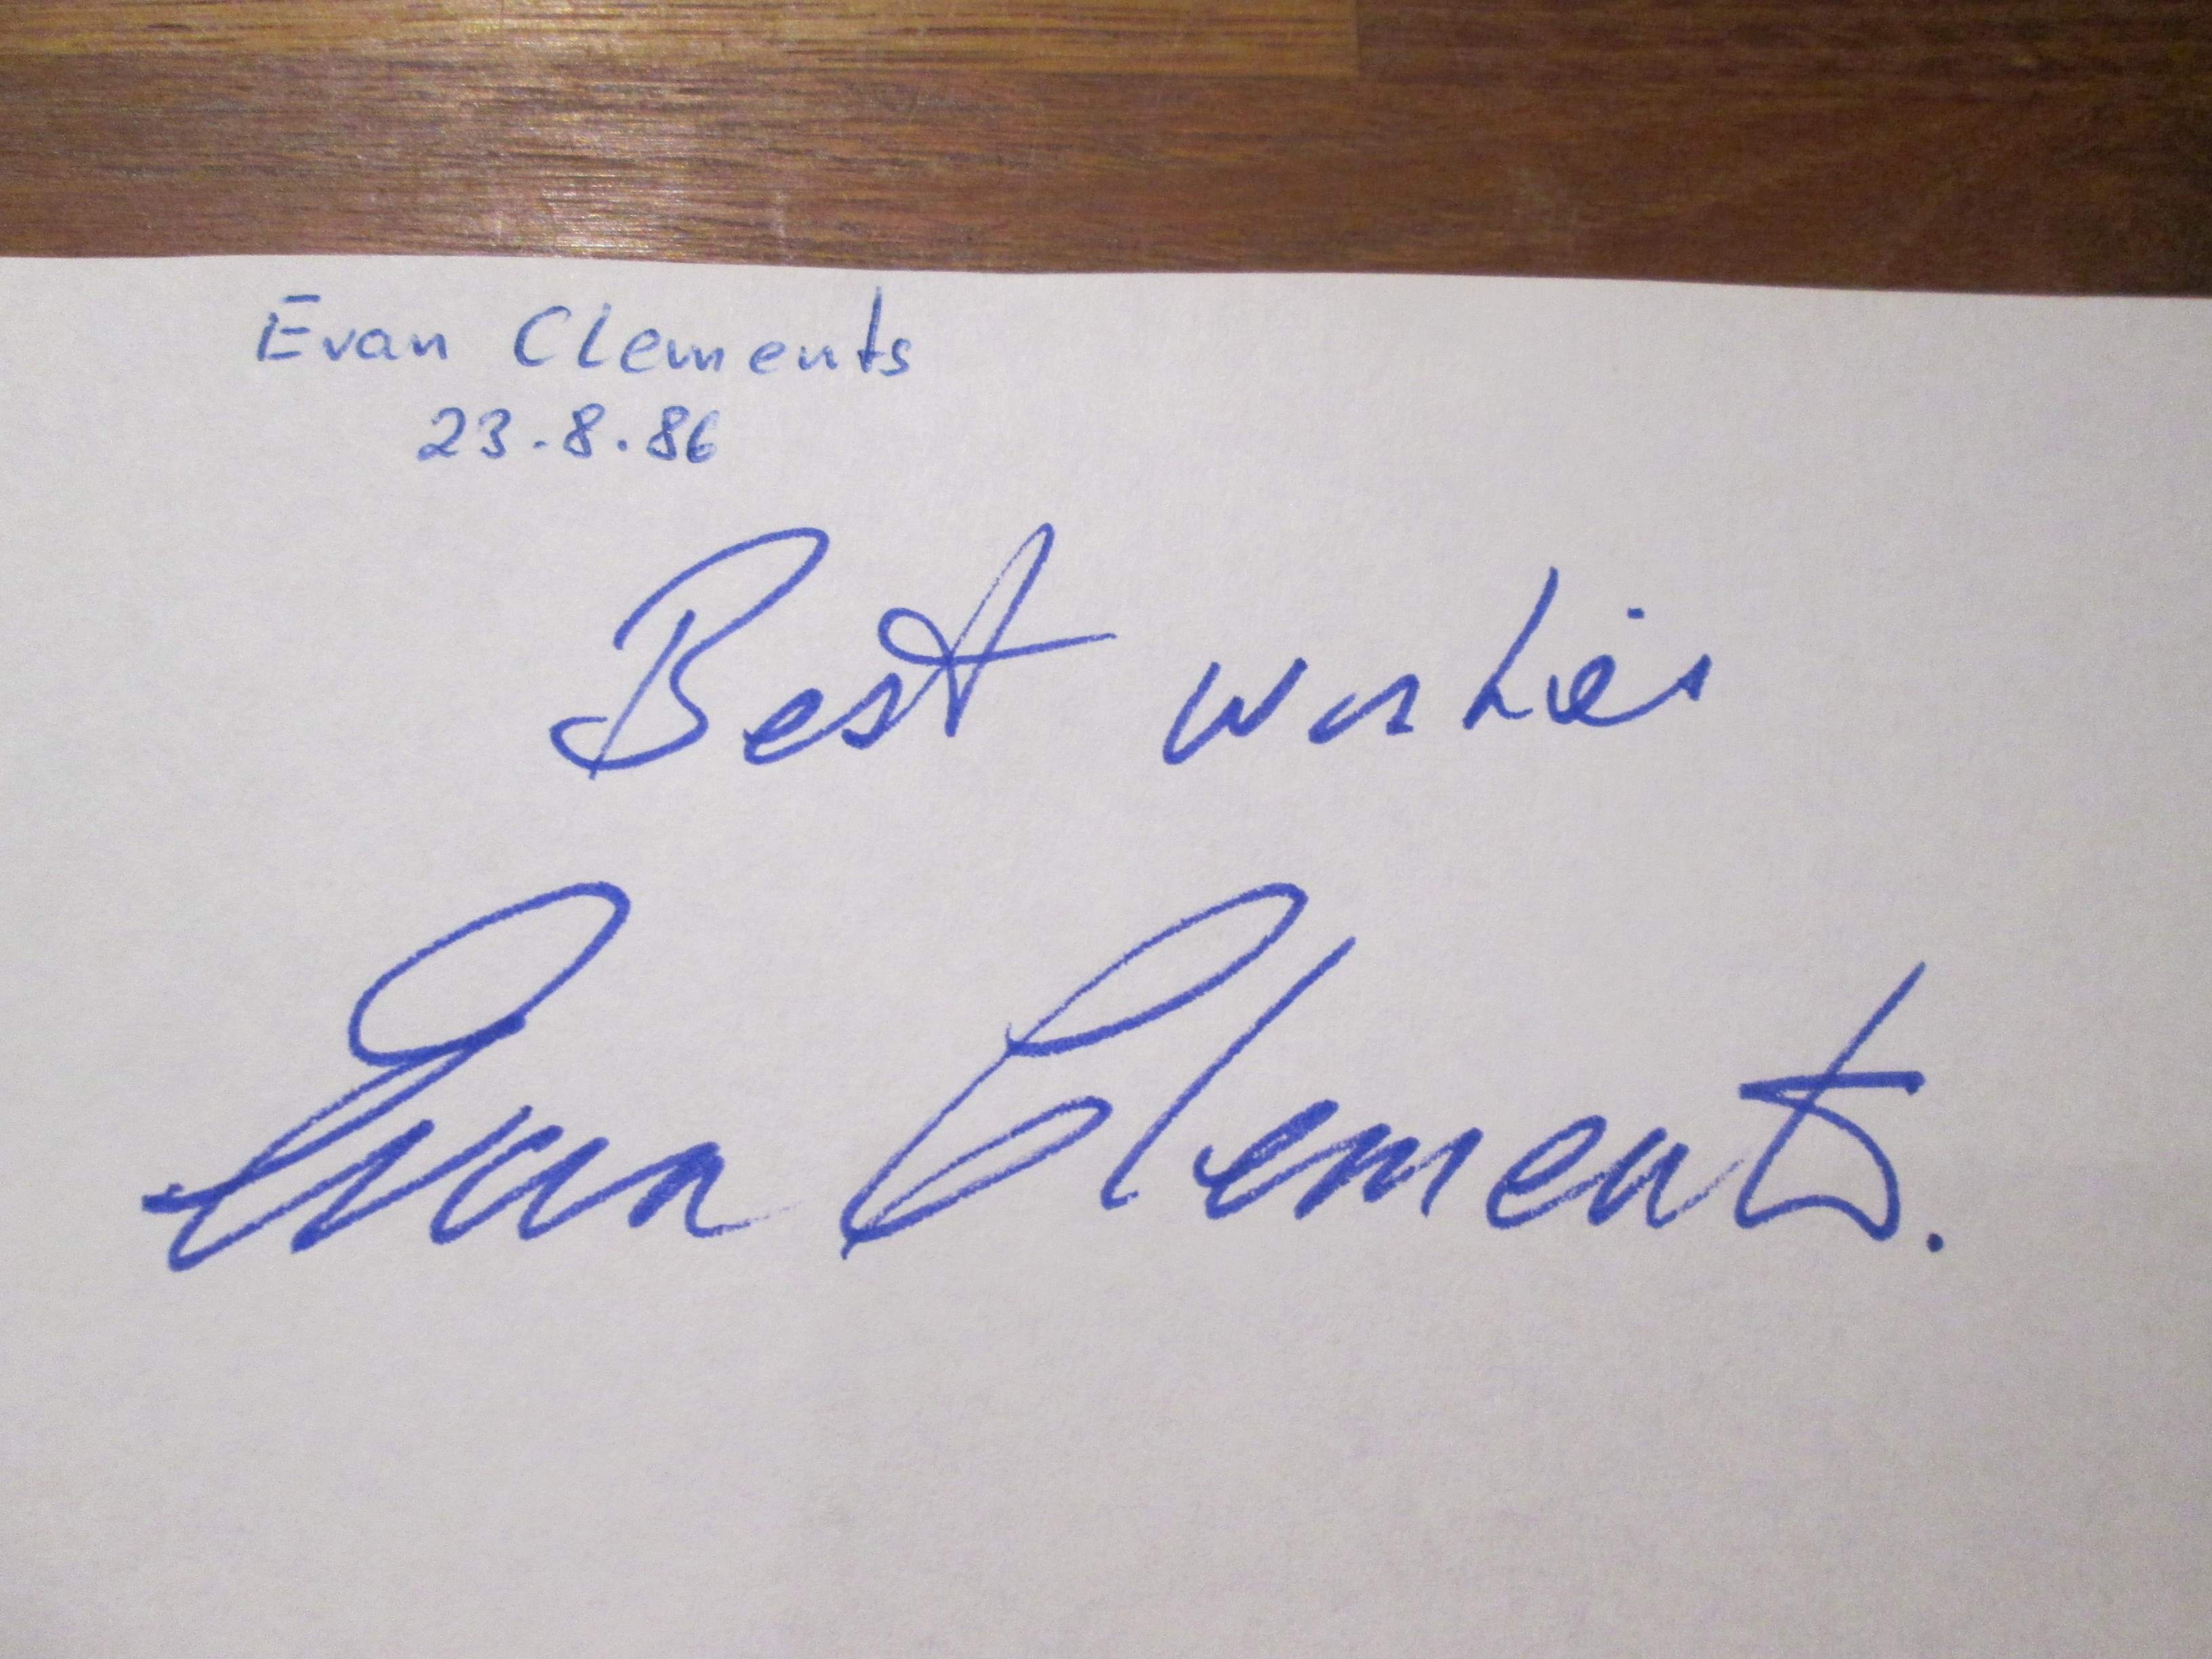 Evan Clements
23.8.86
Best wishes
Evan Clements.